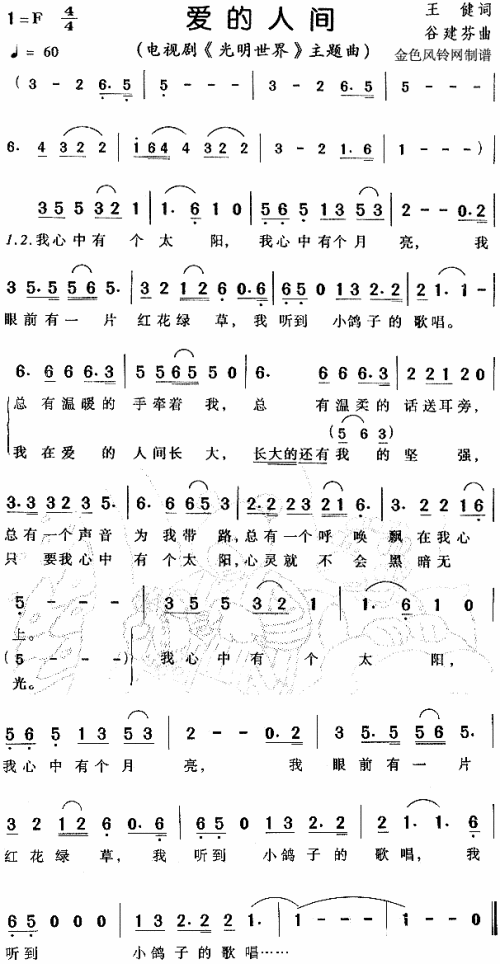 爱的人间
1=F 4/4
王 健词
♩= 60
(电视剧《光明世界》主题曲)
谷建芬曲
金色风铃网制谱
(3 - 2 6. 5 | 5 - - - | 3 - 2 6. 5 | 5 - - - |
6. 4 3 2 2 | i 6 4 4 3 2 2 | 3 - 2 1. 6 | 1 - - -) |
3 5 5 3 2 1 | 1. 6 1 0 | 5 6 5 1 3 5 3 | 2 - - 0. 2 |
1.2.我心中有 个 太 阳, 我心中有个月 亮, 我
3 5. 5 5 6 5. | 3 2 1 2 6 0. 6 | 6 5 0 1 3 2. 2 | 2 1. 1 - |
眼前有一 片 红花绿 草,我 听到 小鸽子的 歌唱。
6. 6 6 6. 3 | 5 5 6 5 5 0 | 6. 6 6 6. 3 | 2 2 1 2 0 |
总 有温暖的 手牵着 我, 总 有温柔的 话送耳旁,
(5 6 3)
我 在爱 的 人间长 大, 长大的还有我 的 坚 强,
3. 3 3 2 3 5. | 6. 6 6 5 3 | 2. 2 2 3 2 1 6. | 3. 2 2 1 6 |
总有一个声音 为 我带 路,总有一个呼 唤 飘在我心
只 要我心中 有 个太 阳,心灵就 不 会 黑暗无
5 - - - | 3 5 5 3 2 1 | 1. 6 1 0 |
上。
(5 - - -) 我心中有 个 太 阳,
光。
5 6 5 1 3 5 3 | 2 - - 0. 2 | 3 5. 5 5 6 5. |
我心 中有个月 亮, 我 眼前有一 片
3 2 1 2 6 0. 6 | 6 5 0 1 3 2. 2 | 2 1. 1. 6 |
红花绿 草, 我 听到 小鸽子的 歌唱, 我
6 5 0 0 0 | 1 3 2. 2 2 1. | 1 - - - | i - - 0 ‖
听到 小鸽子的歌唱……